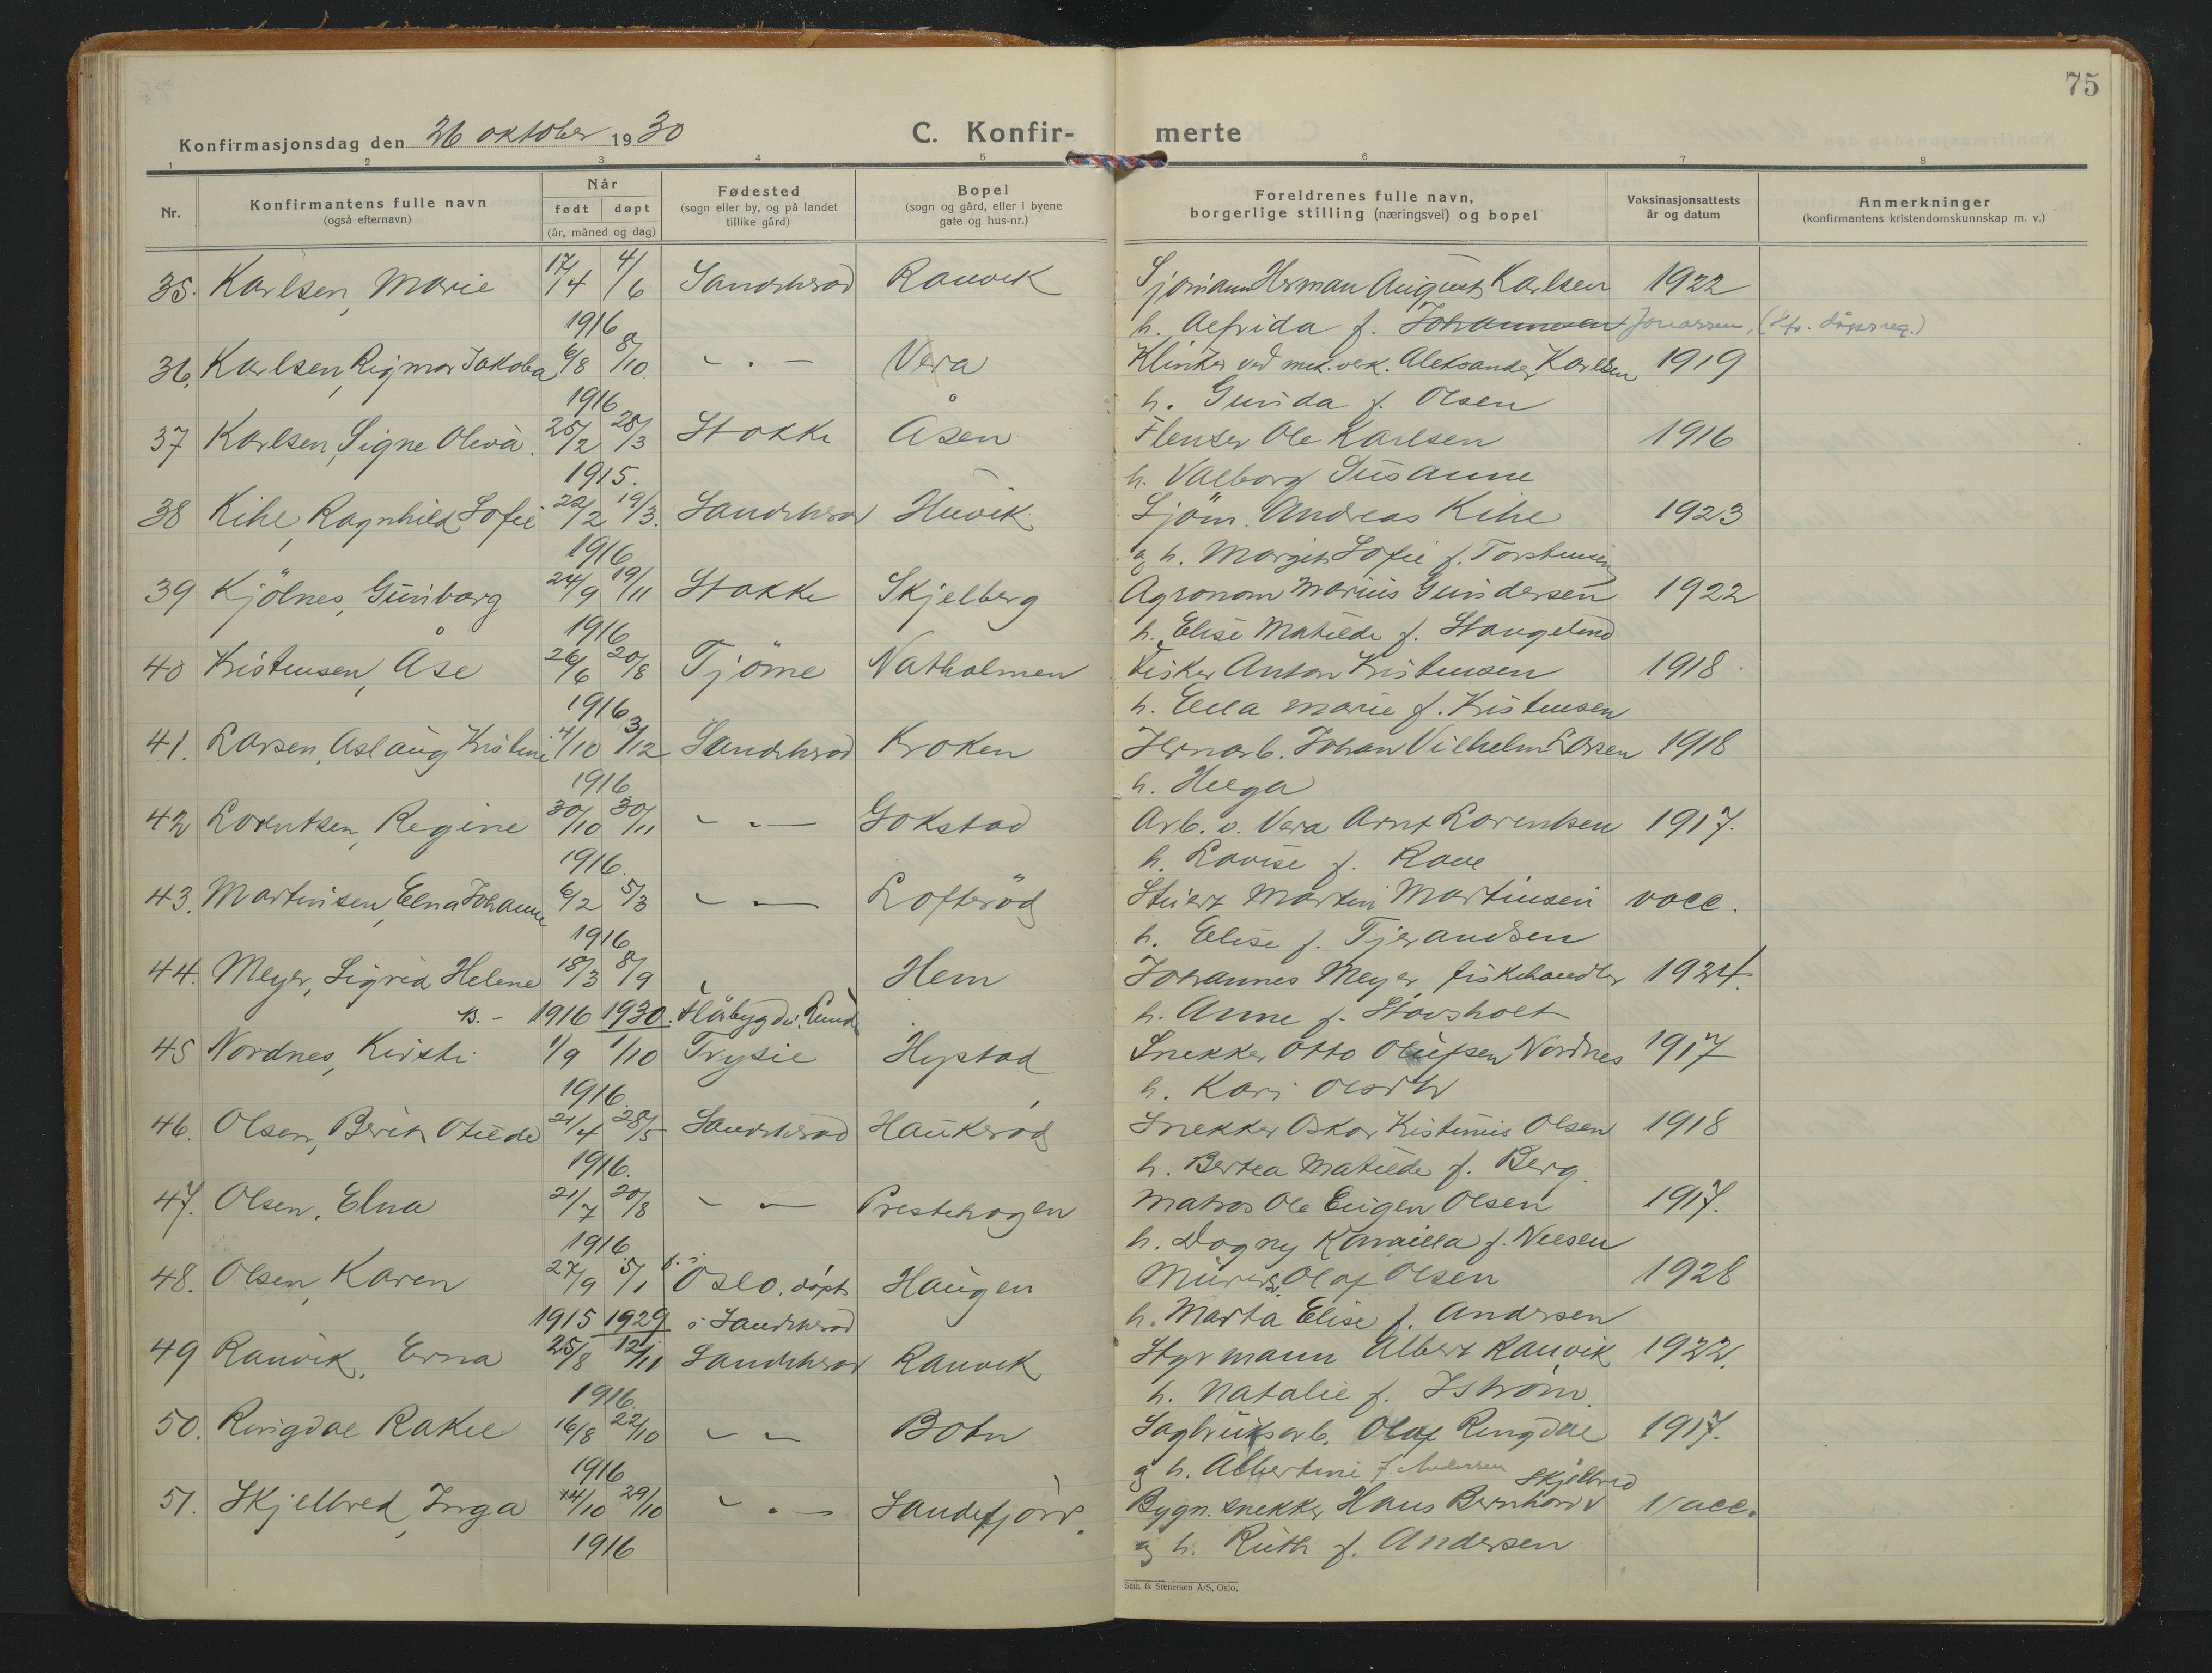 75
Konfirmasjonsdag den 26 oktober 1930
C. Konfir- merte
1 2 3 4 5 6 7 8
Nr.
Konfirmantens fulle navn
(også efternavn)
Når
født døpt
(år, måned og dag)
Fødested
(sogn eller by, og på landet
tillike gård)
Bopel
(sogn og gård, eller i byene
gate og hus-nr.)
Foreldrenes fulle navn,
borgerlige stilling (næringsvei) og bopel
Vaksinasjonsattests
år og datum
Anmerkninger
(konfirmantens kristendomskunnskap m. v.)
35. Karlsen, Marie 17/4 4/6 Sandeherad Ranvik Sjømann Herman August Karlsen 1922
1916 h. Alfrida f. Johannesen Jonassen, (Kfr. dåpsreg.)
36. Karlsen, Rigmor Jakoba 6/8 8/10 - . - Vera Klinker ved mek. verk. Aleksander Karlsen 1919
1916 h. Gunda f. Olsen
37 Karlsen, Signe Oliva. 25/2 28/3 Stokke Åsen Flenser Ole Karlsen 1916
1915. h. Valborg Susanne
38 Kihe, Ragnhild Sofie 22/2 19/3. Sandeherad Huvik Sjöm. Andreas Kihe 1923
1916 og h. Margit Sofie f. Torstensen
39 Kjölnes, Gunborg 24/9 19/11 Stokke Skjelberg Agronom Marius Gundersen 1922
1916 h. Elise Matilde f. Stangeland
40 Kristensen, Åse 26/6 20/8 Tjöme Natholmen Fisker Anton Kristensen 1918
1916 h. Ella Marie f. Kristensen
41. Larsen, Aslaug Kristine 4/10 3/12 Sandeherad Kroken Jernarb. Johan Vilhelm Larsen 1918
1916 h. Helga
42 Lorentsen, Regine 30/10 30/11 - . - Gokstad Arb. v. Vera Arnt Lorentsen 1917.
1916. h. Lovise f. Rove
43. Martinsen, Elna Johanne 6/2 5/3 - - Lofteröd Stuert Martin Martinsen vacc.
1916 h. Elise f. Tjerandsen
44. Meyer, Sigrid Helene 18/3 8/9 Hem Johannes Meyer, fiskehandler 1924.
1916 1930. h. Anne f. Stovsholt
45 Nordnes, Kirsti 1/9 1/10 Trysil Hystad Snekker Otto Olufsen Nordnes 1917
1916. h. Kari Olsdtr
46. Olsen, Berit Otilde 21/4 28/5 Sandeherad Haukeröd Snekker Oskar Kistinius Olsen 1918
1916. h. Bertea Matilde f. Berg.
47. Olsen, Elna 21/7 20/8 - - Prestehagen Matros Ole Eugen Olsen 1917.
1916 h. Dagny Kamilla f. Nilsen
48. Olsen, Karen 27/9 5/1 f. i Oslo, döpt Haugen Murer Olaf Olsen 1928
1915 1929 i Sandeherad h. Marta Elise f. Andersen
49 Ranvik, Erna 25/8 12/11 Sandeherad Ranvik Styrmann Albert Ranvik 1922.
1916. h. Natalie f. Iström
50. Ringdal Rakel 16/8 22/10 - - Botn Sagbruksarb. Olaf Ringdal 1917.
1916 og h. Albertine f. Andersen
51. Skjelbred, Inga 14/10 29/10 - . - Sandefjord. Bygn. snekker Hans Bernhard Skjelbred Vacc.
1916 og h. Ruth f. Andersen
Sem & Stenersen A/S, Oslo.